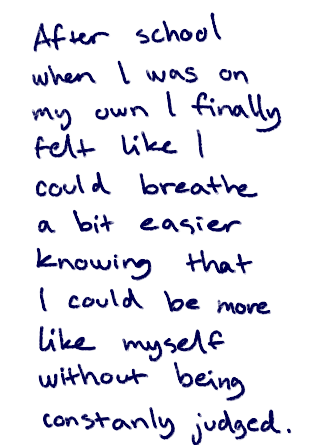 After school
when I was on
my own I finally
felt like I
could breathe
a bit easier
knowing that
I could be more
like myself
without being
constanly judged.